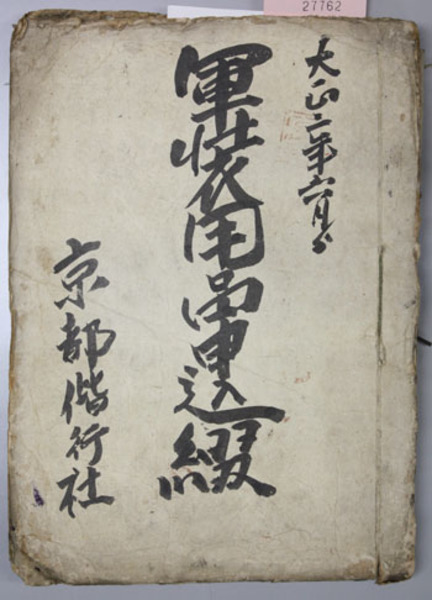 27762
大正二年六月ゟ
軍装用品申込綴
京都偕行社